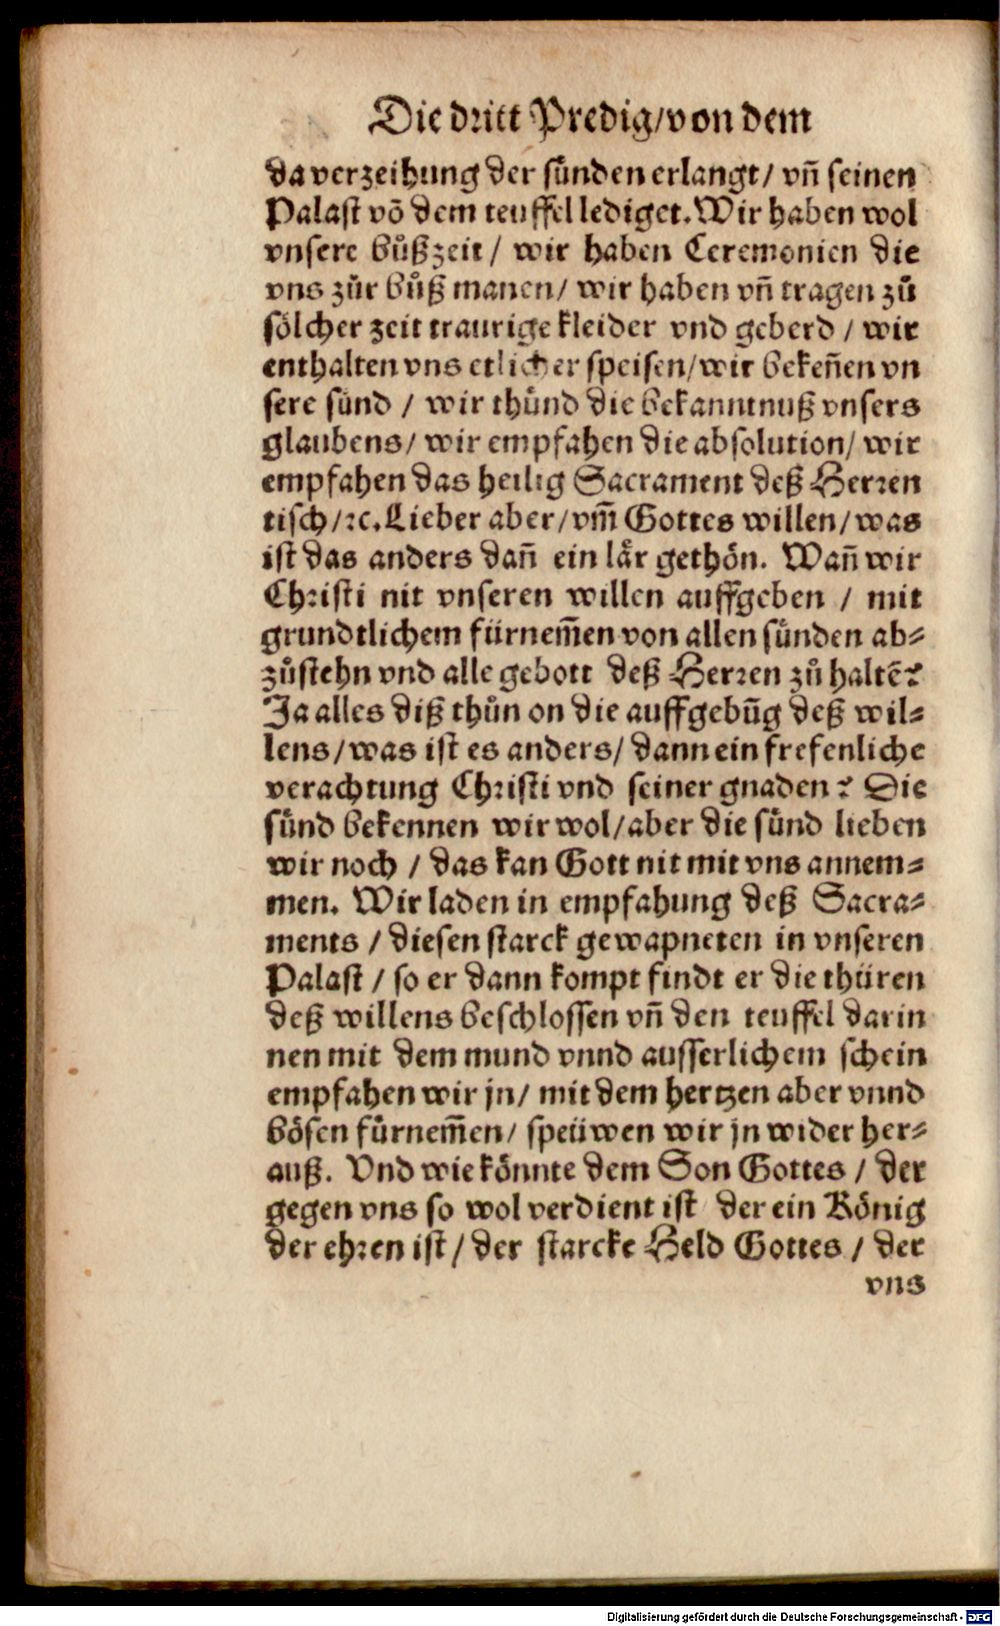 Die dritt Predig/von dem
da verzeihung der sünden erlangt/ vñ seinen
Palast võ dem teuffel lediget. Wir haben wol
vnsere bůßzeit/ wir haben Ceremonien die
vns zůr bůß manen/ wir haben vñ tragen zů
sölcher zeit traurige kleider vnd geberd / wir
enthalten vns etlicher speisen/wir bekeñen vn
sere sünd / wir thůnd die bekanntnuß vnsers
glaubens/ wir empfahen die absolution/ wir
empfahen das heilig Sacrament deß Herren
tisch/ꝛc. Lieber aber/vm̃ Gottes willen/was
ist das anders dañ ein lär gethön. Wañ wir
Christi nit vnseren willen auffgeben / mit
grundtlichem fürnem̃en von allen sünden ab⸗
zůstehn vnd alle gebott deß Herren zů haltẽ?
Ja alles diß thůn on die auffgebũg deß wil⸗
lens/was ist es anders/ dann ein frefenliche
verachtung Christi vnd seiner gnaden? Die
sünd bekennen wir wol/aber die sünd lieben
wir noch / das kan Gott nit mit vns annem⸗
men. Wir laden in empfahung deß Sacra⸗
ments / diesen starck gewapneten in vnseren
Palast / so er dann kompt findt er die thüren
deß willens beschlossen vñ den teuffel darin
nen mit dem mund vnnd ausserlichem schein
empfahen wir jn/ mit dem hertzen aber vnnd
bösen fürnem̃en/ speüwen wir jn wider her⸗
auß. Vnd wie könnte dem Son Gottes / der
gegen vns so wol verdient ist der ein König
der ehren ist/ der starcke Held Gottes / der
vns
Digitalisierung gefördert durch die Deutsche Forschungsgemeinschaft - DFG